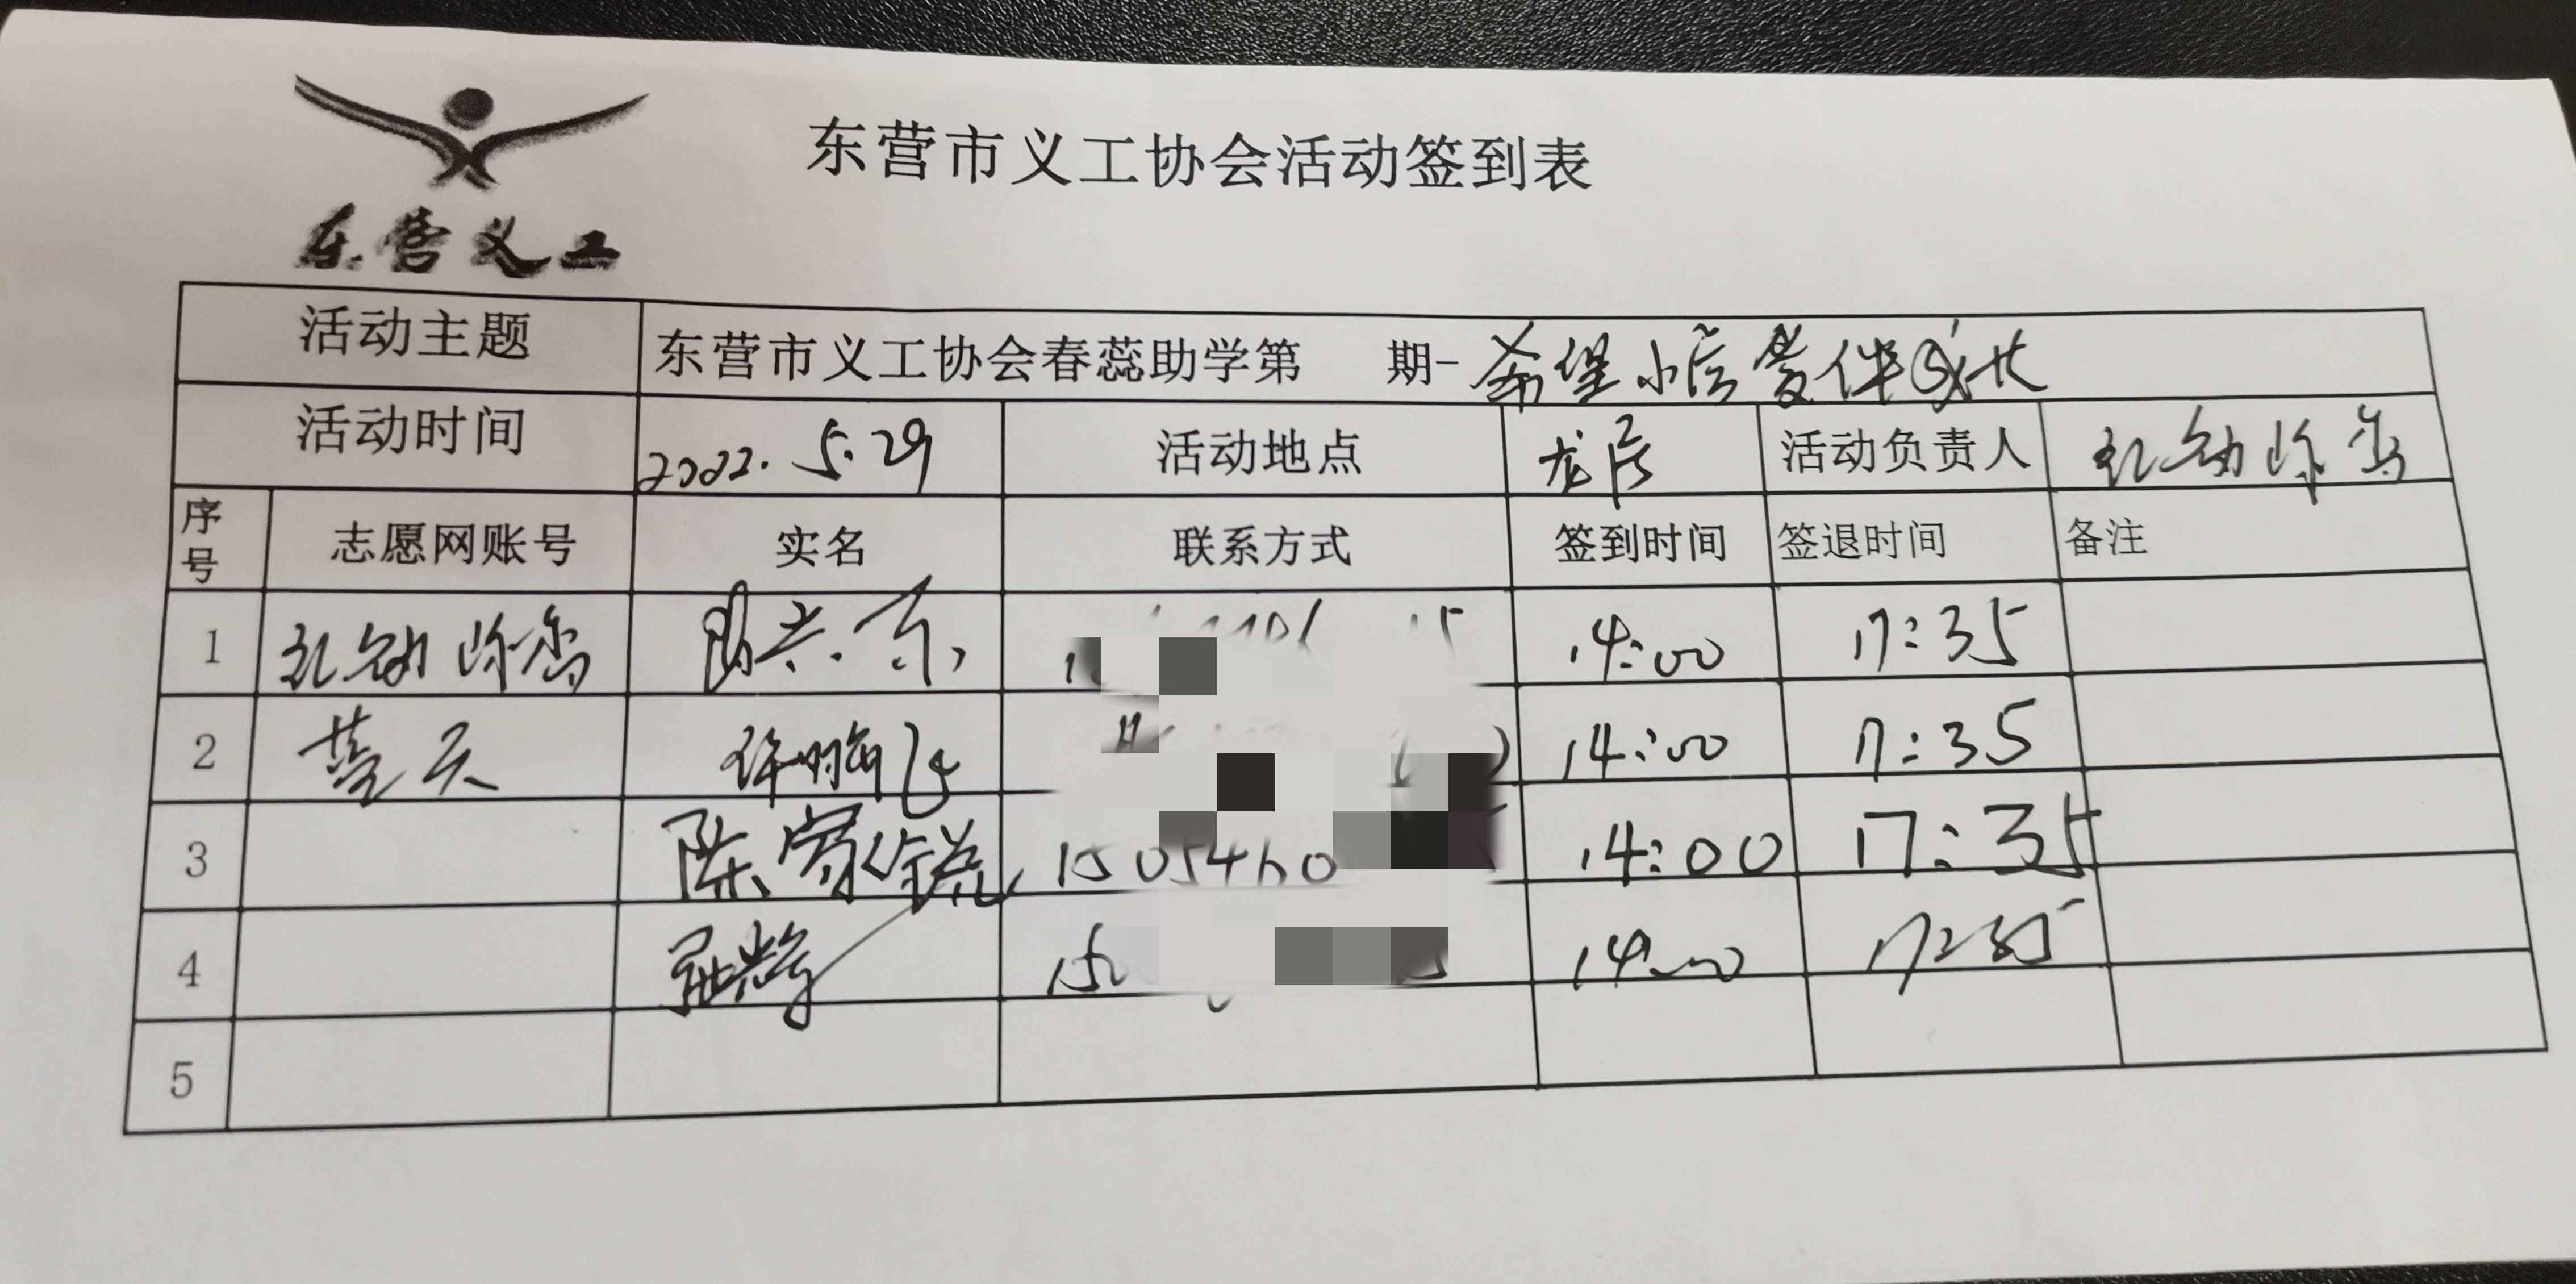 东营市义工协会活动签到表
东营义工
活动主题 东营市义工协会春蕊助学第 期- 希望小屋爱伴成长
活动时间 2022.5.29 活动地点 龙居 活动负责人
序号 志愿网账号 实名 联系方式 签到时间 签退时间 备注
1 14:00 17:35
2 蓝天 许晓飞 14:00 17:35
3 陈 1505460 14:00 17:35
4 14:00 17:35
5